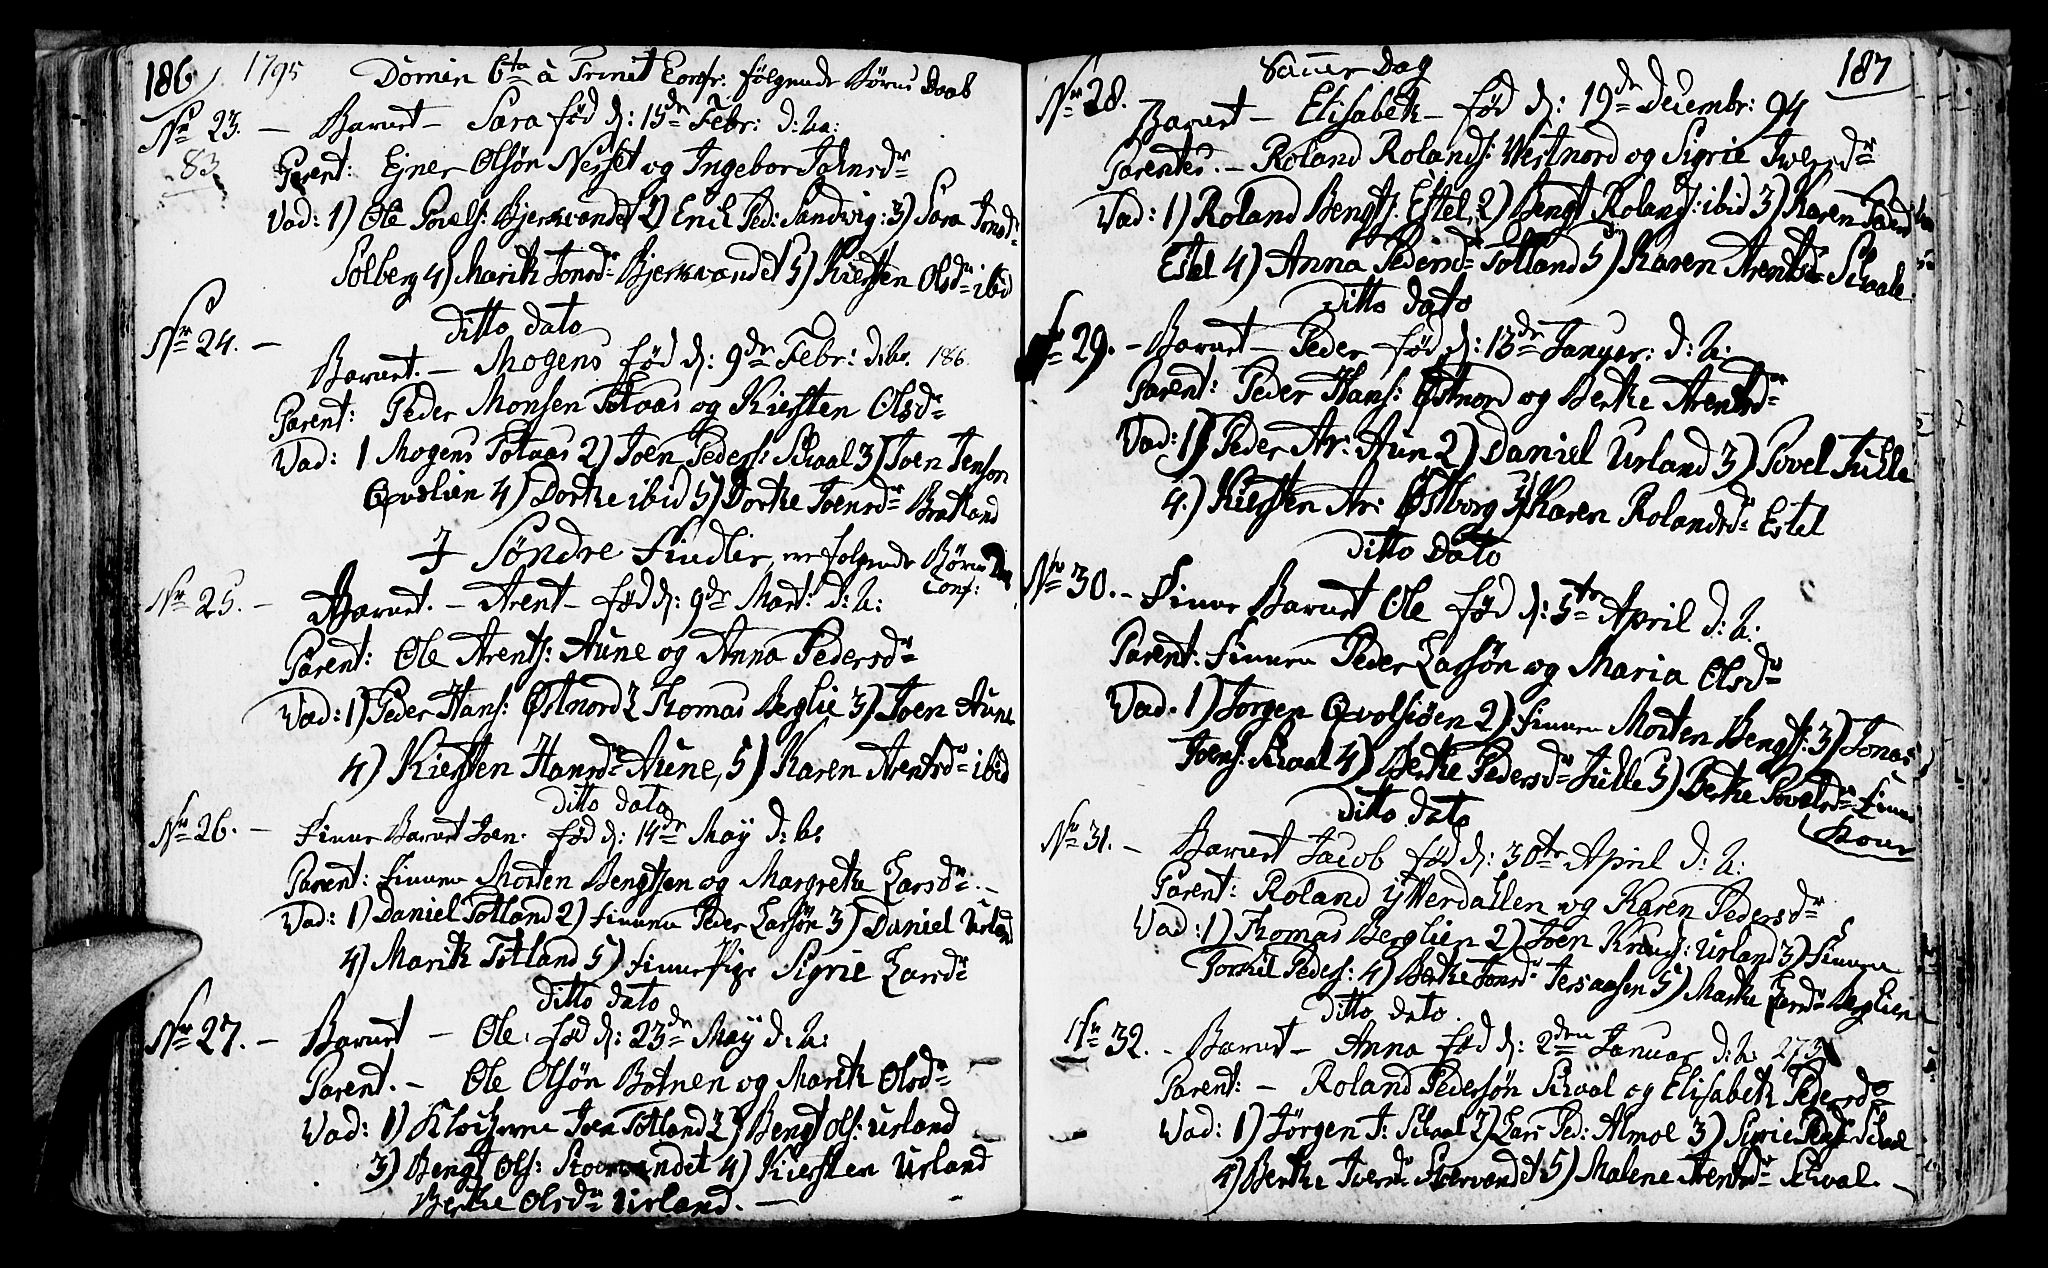 186 1795 Domin 6ta à Trinit Confr: følgende Børns Daab
Nr 23. - Barnet - Sara fød d: 15de Febr: d: A:
83
Parent: Ejner Olsön Nesset og Ingebor Johnsdr
Vad: 1) Ole Povels: Bjerkvandet 2) Erich Ped: Sandvig: 3) Sara Jonsd:
Solberg 4) Marith Jonsdr Bjerkvandet 5) Kiersten Olsdr ibid
Ditto dato
Nr 24. - Barnet. - Mogens fød d: 9de Febr: d: A: 186
Parent: Peder Monsen Totaas og Kiersten Olsdr
Vad: 1 Mogens Totaas 2) Joen Peders: Schaal 3) Joen Jenson
Qvolien 4) Dorthe ibid 5) Dorthe Joensdr Bratland
I Søndre Findlier, ere følgende Børns
Conf:
Nr 25. - Barnet. - Arent - fød d: 9de Mart: d: A:
Parent: Ole Arents: Aune og Anna Pedersdr
Vad: 1) Peder Hans: Østnord 2 Thomas Berglie 3) Joen Aune
4) Kiersten Hansdr Aune, 5) Karen Arentsdr ibid
Ditto dato
Nr 26. - Finne Barnet Joen. fød d: 14de May d: A:
Parent: Finnen Morten Bengtsen og Margrethe Larsdr. -
Vad: 1) Daniel Totland 2) Finnen Peder Larsøn 3) Daniel Urland
4) Marith Totland 5) Finnepige Sigrie Larsdr
Ditto dato
Nr 27. - Barnet - Ole. fød d: 23de May d: A:
Parent. - Ole Olsön Botnen og Marith Olsdr
Vad: 1) Klochern Joen Totland 2) Bengt Ols: Urland
3) Bengt Ols: Storvandet 4) Kiersten Urland
Berthe Olsdr Urland. -
Samme Dag 187
Nr 28. Barnet - Elisabeth - fød d: 19de Decembr: 94
Parentes. - Roland Rolands: Westnord og Sigrie Iversdr
Vad: 1) Roland Bengts: Estel, 2) Bengt Rolands: ibid 3) Karen
Estel 4) Anna Pedersdr Totland 5) Karen Arentsdr Schaal
Ditto dato
Nr 29. - Barnet - Peder fød d: 13de Januar: d: A:
Parent: Peder Hans: Østnord og Berthe Arentsdr
Vad: 1) Peder Ar: Aun 2) Daniel Urland 3) Povel Juhle
4.) Kiersten Ar: Østborg 5) Karen Rolandsdr Estel
Ditto Dato
Nr 30. - Finne Barnet Ole fød d: 5te April d: A:
Parent: Finnen Peder Larsøn og Maria Olsdr
Vad. 1) Jorgen Qvolsiøen 2) Finnen Morten Bengts: 3) Jonas
Joens: Schaal 4) Berthe Pedersdr Juhle 5) Berthe Povelsdr Finne
Kone
Ditto dato
Nr 31. - Barnet Jacob fød d: 30te April d: A:
Parent: Roland i Werdallen og Karen Pedersdr
Vad: 1) Thomas Berglien 2) Joen Knuds: Urland 3) Finnen
Torkil Peders: 4) Berthe Jonsdr 5) Marthe Larsdr Berglien
Ditto dato.
Nr 32. - Barnet - Anna fød d: 2den Januar d: A: 273
Parent: - Roland Pedersøn Schaal og Elisabeth Pedersdr
Vad: 1) Jørgen J: Schaal 2) Lars Ped: Almol 3) Sigrie Schaal
4) Berthe Iversdr Storvandet 5) Malene Arentsdr Schaal. -